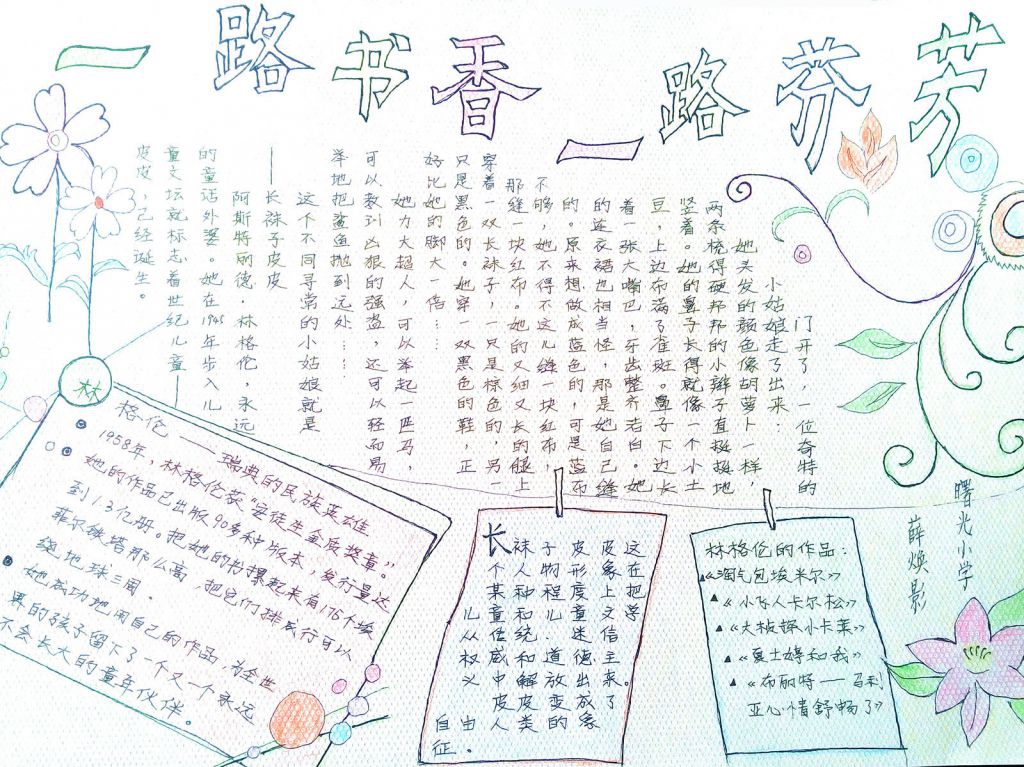 一路书香一路芬芳
门开了,一位奇特的
小姑娘走了出来:
她头发的颜色像胡萝卜一样,
两条梳得硬邦邦的小辫子直挺挺地
竖着。她的鼻子长得就像一个小土
豆,上边布满了雀斑。鼻子下边长
着一张大嘴巴,牙齿整齐洁白。她
的连衣裙也相当怪,那是她自己缝
的。原来想做成蓝色的,可是蓝布
不够,她不得不这儿缝一块红布,
那缝一块红布。她的又细又长的腿上
穿着一双长袜子,一只是棕色的,另一
只是黑色的。她穿一双黑色的鞋,正
好比她的脚大一倍…
她力大超人,可以举起一匹马,
可以教训凶狠的强盗,还可以轻而易
举地把鲨鱼抛到远处……
这个不同寻常的小姑娘就是
——长袜子皮皮
阿斯特丽德·林格伦,永远
的童话外婆。她在1945年步入儿
童文坛就标志着世纪儿童——
皮皮,已经诞生。
林格伦——瑞典的民族英雄
1958年,林格伦获"安徒生金质奖章"。
她的作品已出版90多种版本,发行量达
到1.3亿册。把她的书摞起来有175个埃
菲尔铁塔那么高,把它们排成行可以
绕地球三周。
她成功地用自己的作品,为全世
界的孩子留下了一个又一个永远
不会长大的童年伙伴。
长袜子皮皮这
个人物形象在
某种程度上把
儿童和儿童文学
从传统、迷信
权威和道德主
义中解放出来。
皮皮变成了
自由人类的象
征。
林格伦的作品:
▲《淘气包埃米尔》
▲《小飞人卡尔松》
▲《大侦探小卡莱》
▲《夏士婷和我》
▲《布丽特——马利
亚心情舒畅了》
曙光小学
薛焕影